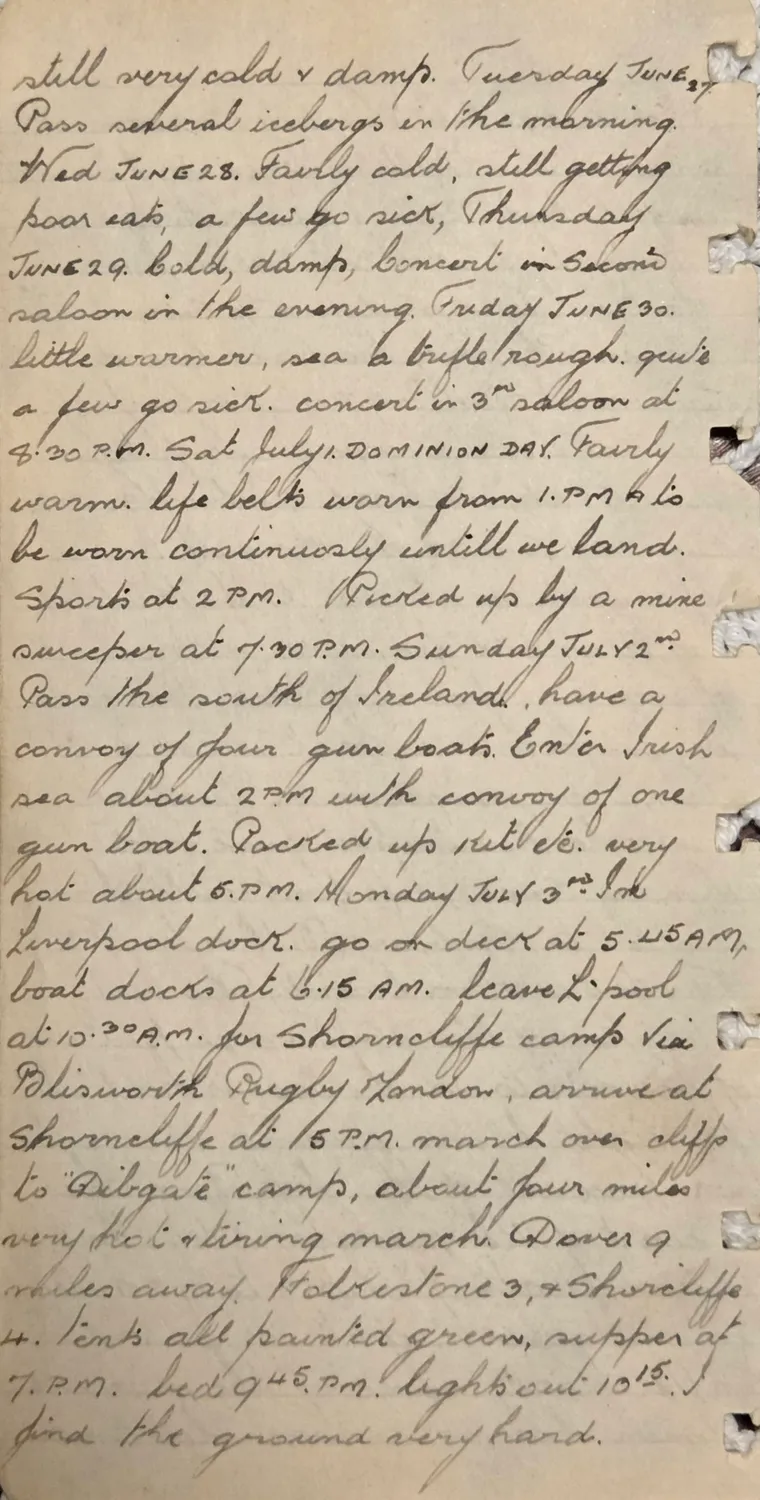 still very cold & damp. Tuesday JUNE 27
Pass several icebergs in the morning.
Wed JUNE 28. Fairly cold, still getting
poor eats, a few go sick, Thursday
JUNE 29. Cold, damp, Concert in Second
saloon in the evening. Friday JUNE 30.
little warmer, sea a trifle rough. quite
a few go sick. concert in 3rd saloon at
8.30 P.M. Sat July 1. DOMINION DAY. Fairly
warm. life belts worn from 1. PM & to
be worn continuosly untill we land.
Sports at 2 PM. Picked up by a mine
sweeper at 7.30 P.M. Sunday JULY 2nd.
Pass the south of Ireland, have a
convoy of four gun boats. Enter Irish
sea about 2 PM with convoy of one
gun boat. Packed up kit etc. very
hot about 5. P.M. Monday JULY 3rd. In
Liverpool dock. go on deck at 5.45 AM,
boat docks at 6.15 AM. leave L'pool
at 10.30 A.M. for Shorncliffe camp via
Blisworth Rugby London, arrive at
Shorncliffe at 5 P.M. march over cliffs
to "Dibgate" camp, about four miles
very hot & tiring march. Dover 9
miles away. Folkestone 3, & Shorcliffe
4. Tents all painted green, supper at
7. P.M. bed 9 45. P.M. lights out 10 15. I
find the ground very hard.